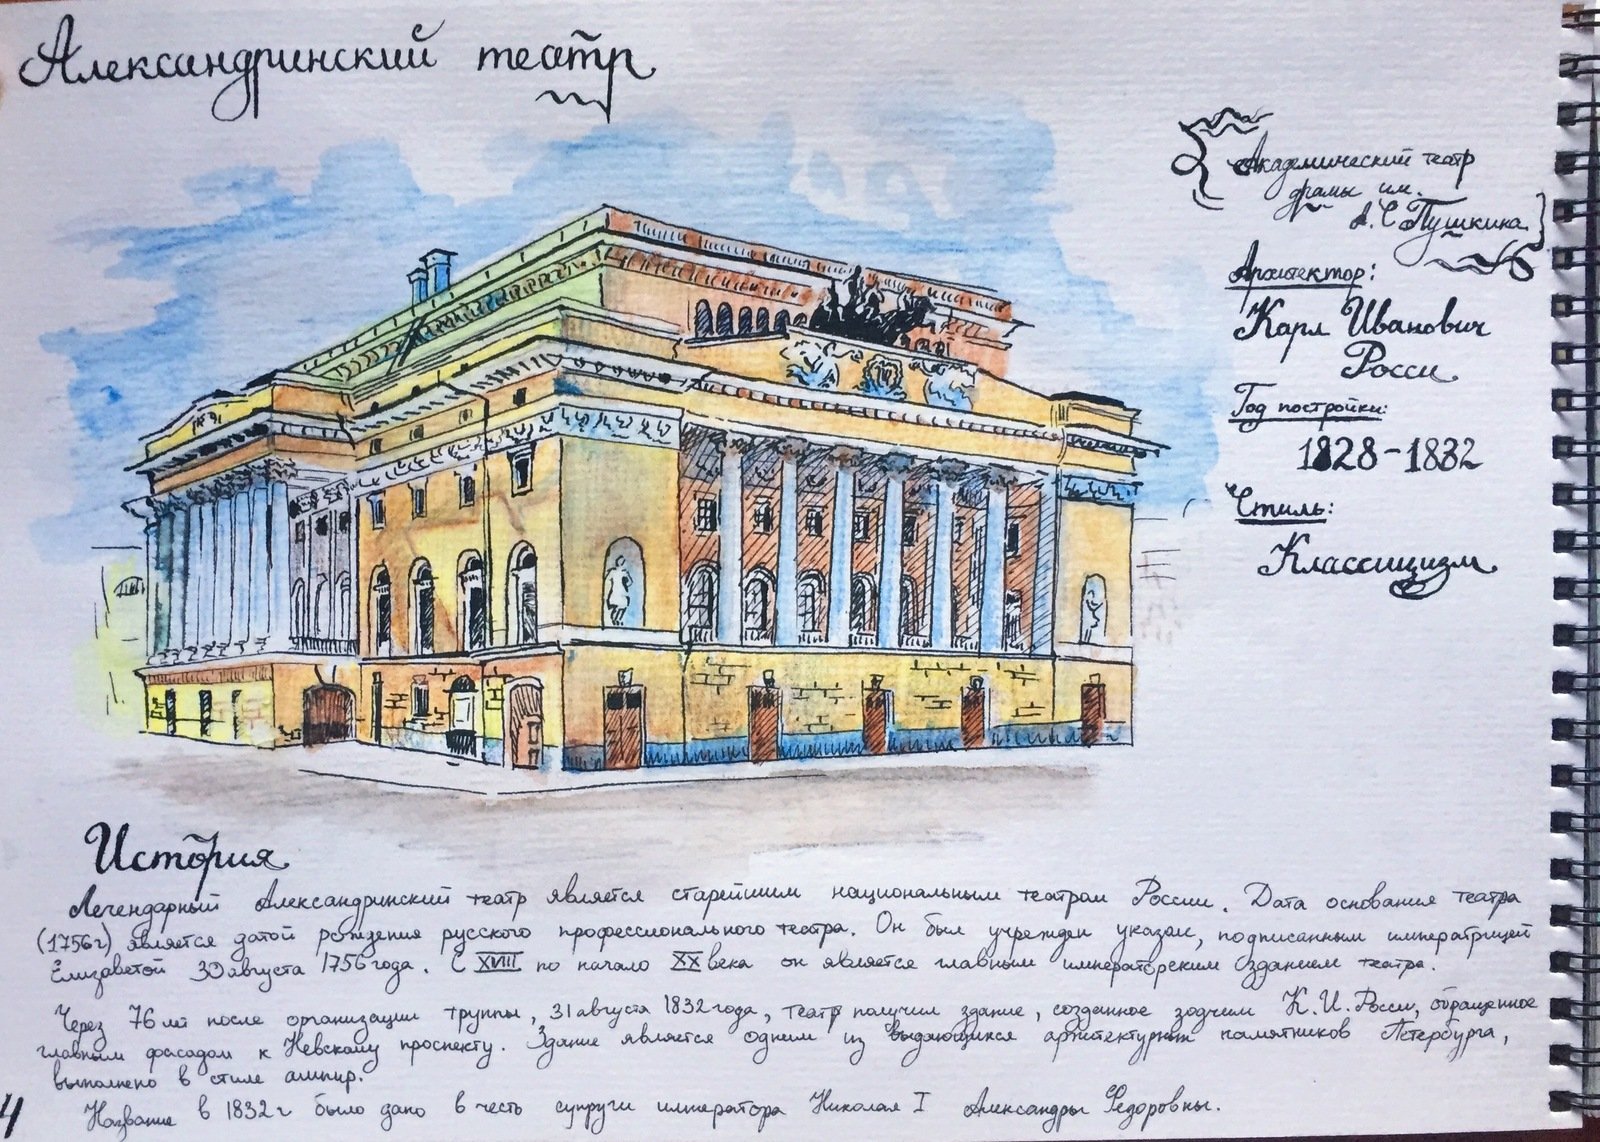 Александринский театр
Академический театр
драмы им.
А.С Пушкина
Архитектор:
Карл Иванович
Росси
Год постройки:
1828-1832
Стиль:
Классицизм
История
Легендарный Александринский театр является старейшим национальным театром России. Дата основания театра
(1756г) является датой рождения русского профессионального театра. Он был учрежден указом, подписанным императрицей
Елизаветой 30 августа 1756 года. С XVIII по начало XX века он является главным императорским зданием театра.
Через 76 лет после организации труппы, 31 августа 1832 года, театр получил здание, созданное зодчим К.И.Росси, обращенное
главным фасадом к Невскому проспекту. Здание является одним из выдающихся архитектурных памятников Петербурга,
выполнено в стиле ампир.
Название в 1832 г было дано в честь супруги императора Николая I Александры Федоровны.
4